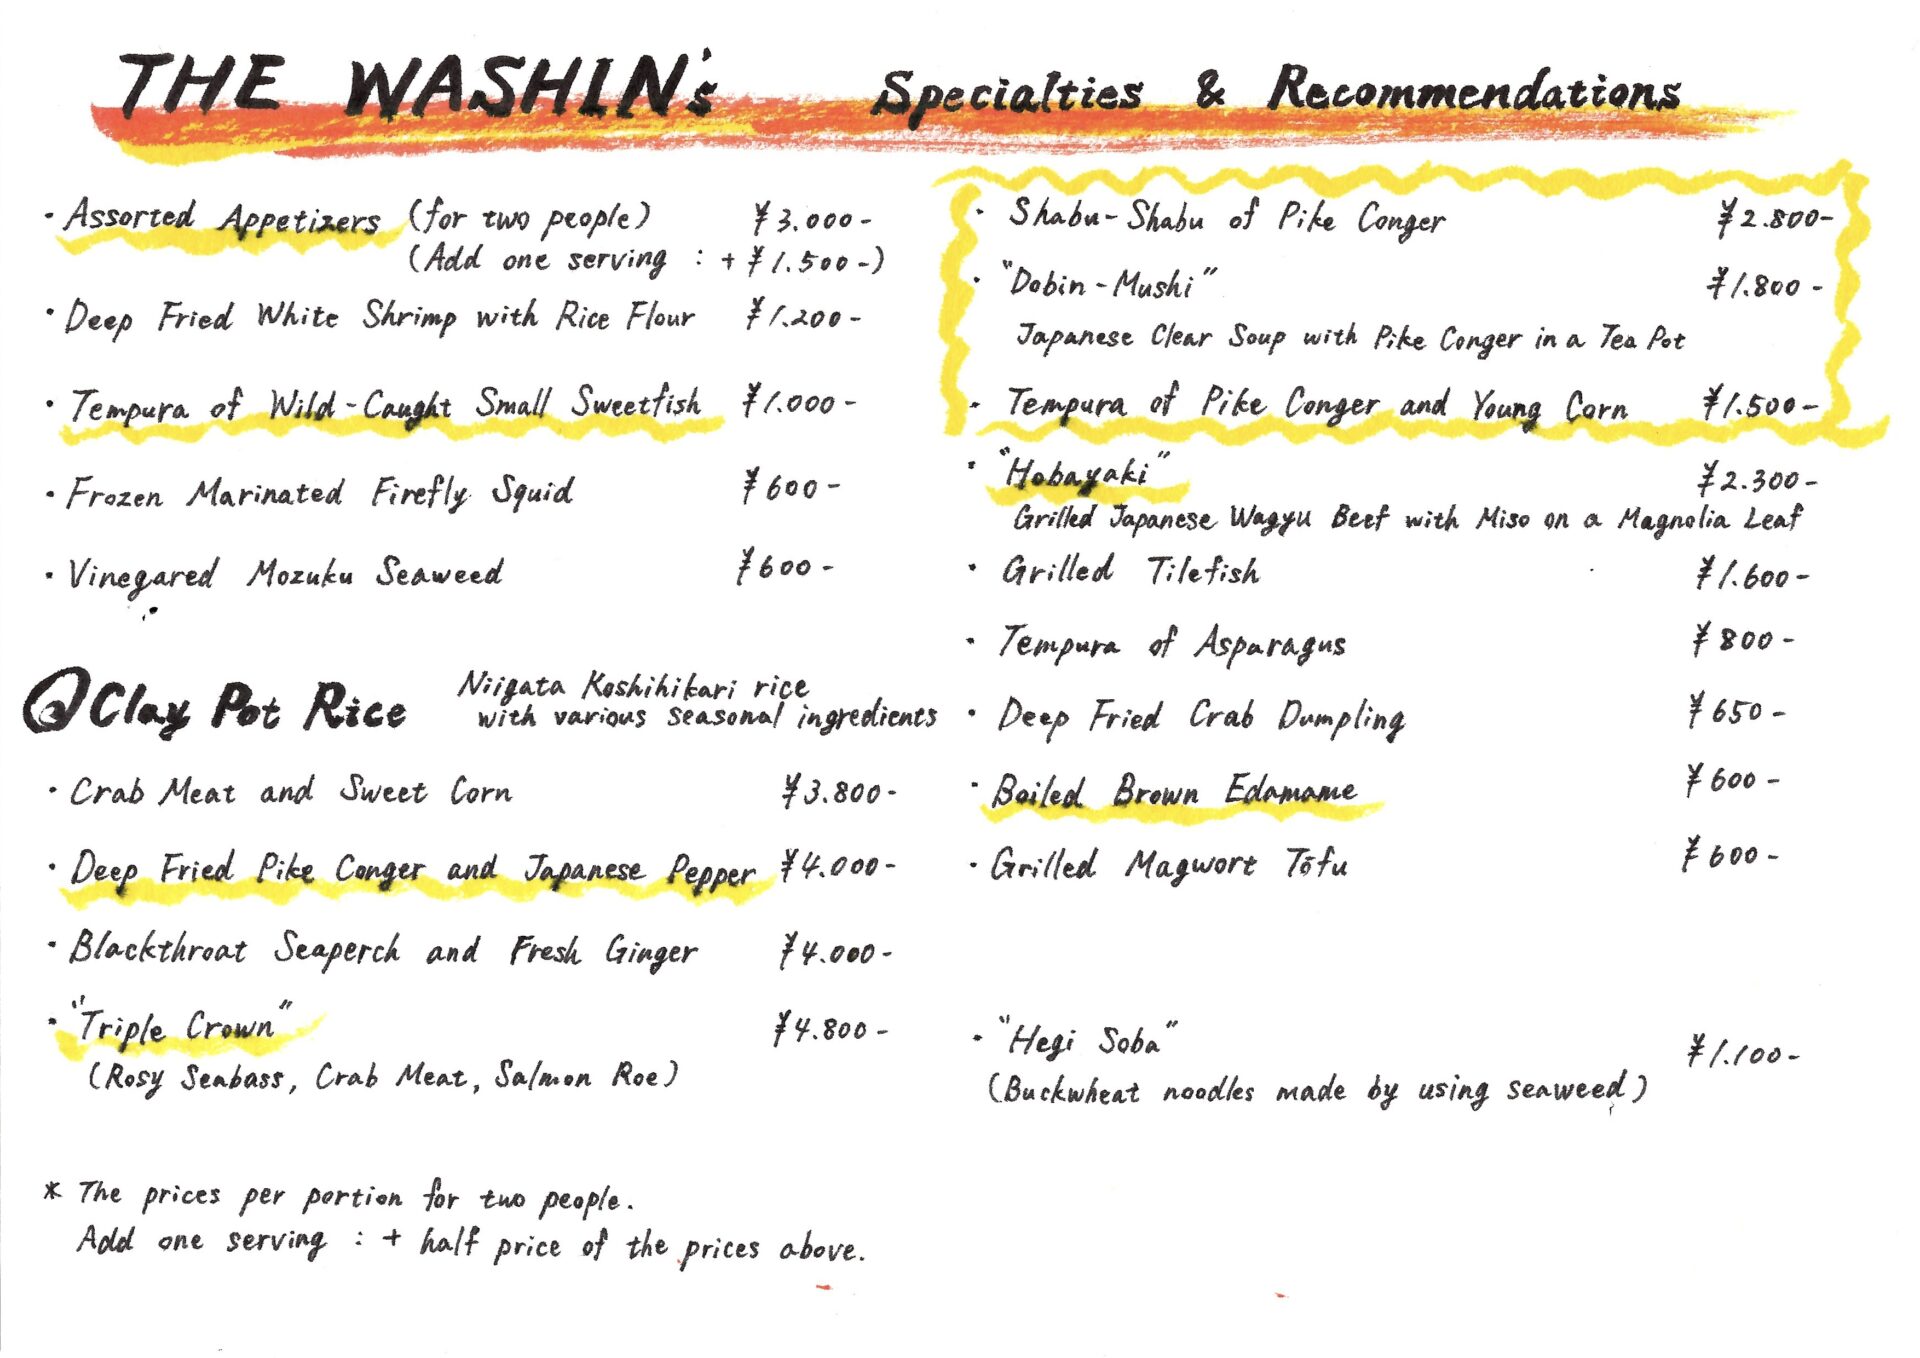 THE WASHIN's Specialties & Recommendations
・Assorted Appetizers (for two people) ¥3.000-
(Add one serving : + ¥1.500-)
・Deep Fried White Shrimp with Rice Flour ¥1.200-
・Tempura of Wild-Caught Small Sweetfish ¥1.000-
・Frozen Marinated Firefly Squid ¥600-
・Vinegared Mozuku Seaweed ¥600-
Clay Pot Rice
Niigata Koshihikari rice
with various seasonal ingredients
・Crab Meat and Sweet Corn ¥3.800-
・Deep Fried Pike Conger and Japanese Pepper ¥4.000-
・Blackthroat Seaperch and Fresh Ginger ¥4.000-
・"Triple Crown" ¥4.800-
(Rosy Seabass, Crab Meat, Salmon Roe)
* The prices per portion for two people.
Add one serving : + half price of the prices above.
・Shabu-Shabu of Pike Conger ¥2.800-
・"Dobin-Mushi" ¥1.800-
Japanese Clear Soup with Pike Conger in a Tea Pot
・Tempura of Pike Conger and Young Corn ¥1.500-
・"Hobayaki" ¥2.300-
Grilled Japanese Wagyu Beef with Miso on a Magnolia Leaf
・Grilled Tilefish ¥1.600-
・Tempura of Asparagus ¥800-
・Deep Fried Crab Dumpling ¥650-
・Boiled Brown Edamame ¥600-
・Grilled Magwort Tōfu ¥600-
・"Hegi Soba" ¥1.100-
(Buckwheat noodles made by using seaweed)